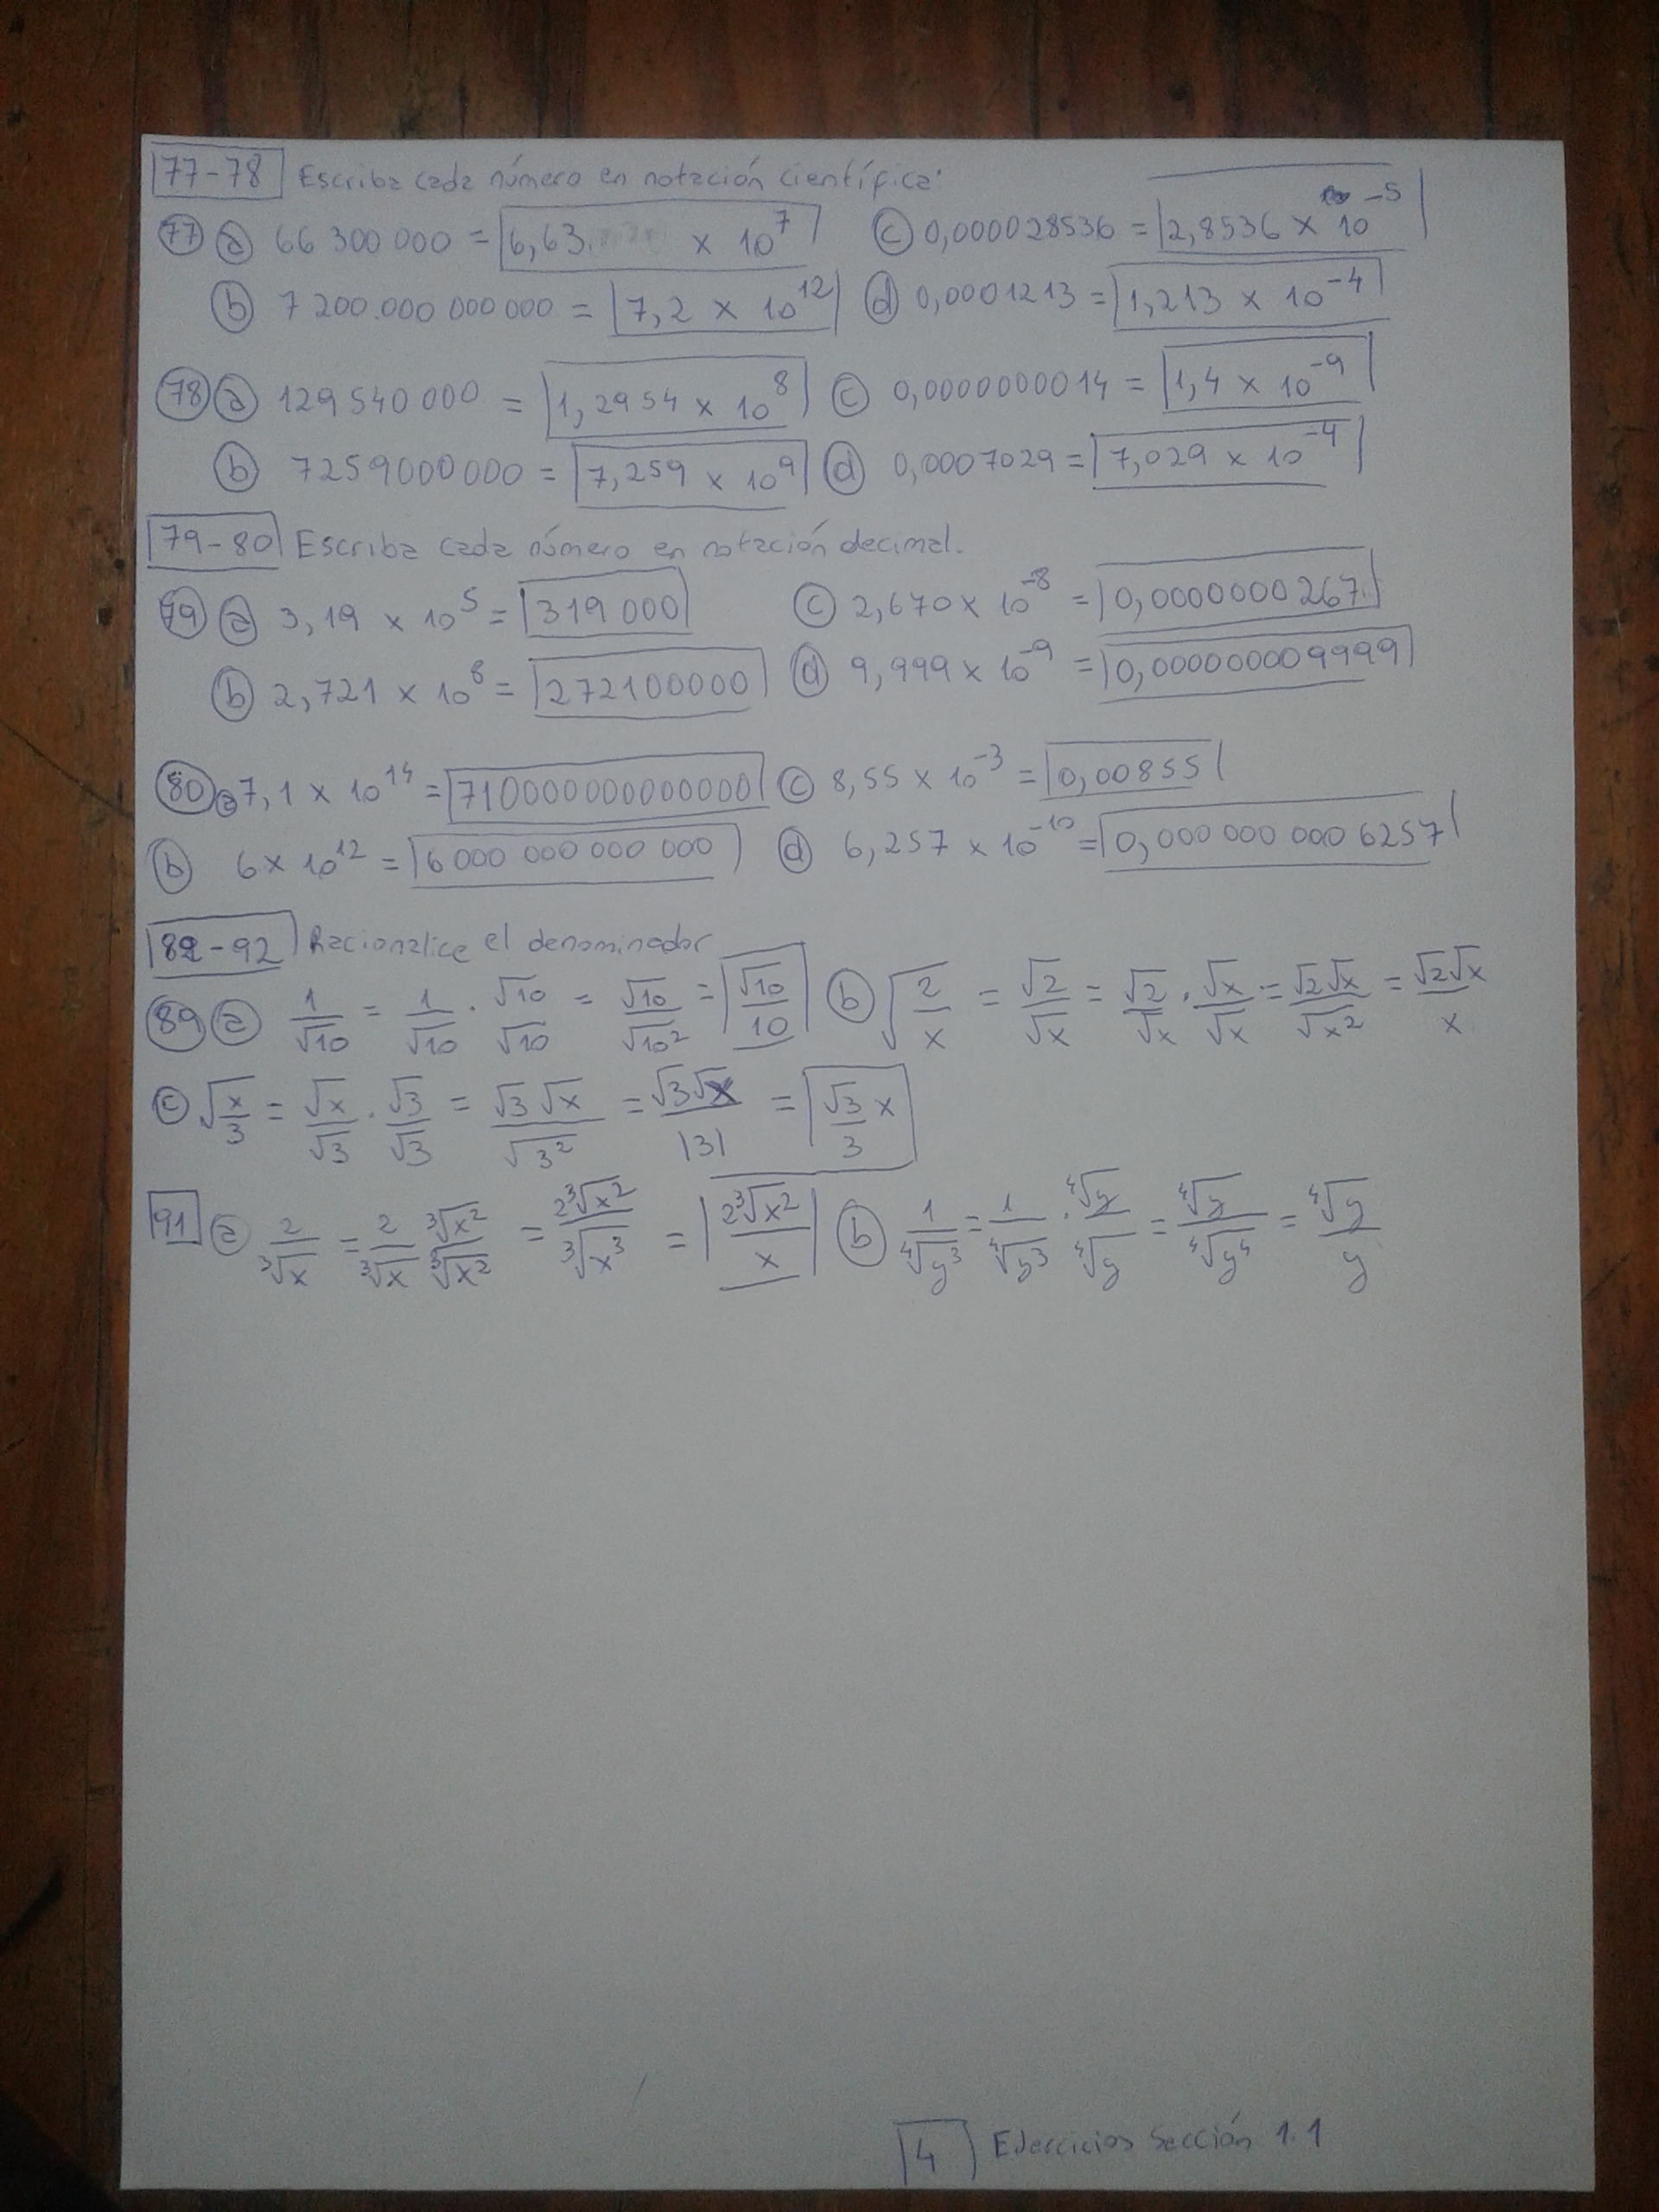 77-78 Escriba cada número en notación científica:
77 a 66 300 000 = 6,63 x 10^7 c 0,000028536 = 2,8536 x 10^-5
b 7 200.000 000 000 = 7,2 x 10^12 d 0,0001213 = 1,213 x 10^-4
78 a 129 540 000 = 1,2954 x 10^8 c 0,0000000014 = 1,4 x 10^-9
b 7259000000 = 7,259 x 10^9 d 0,0007029 = 7,029 x 10^-4
79-80 Escriba cada número en notación decimal.
79 a 3,19 x 10^5 = 319 000 c 2,670 x 10^-8 = 0,0000000267
b 2,721 x 10^8 = 272100000 d 9,999 x 10^-9 = 0,000000009999
80 a 7,1 x 10^14 = 710000000000000 c 8,55 x 10^-3 = 0,00855
b 6 x 10^12 = 6 000 000 000 000 d 6,257 x 10^-10 = 0,000 000 000 6257
89-92 Racionalice el denominador
89 a 1/√10 = 1/√10 · √10/√10 = √10/√10² = √10/10 b √(2/x) = √2/√x = √2/√x · √x/√x = √2√x/√x² = √2√x/x
c √(x/3) = √x/√3 · √3/√3 = √3√x/√3² = √3√x/|3| = √3/3 x
91 a 2/³√x = 2/³√x ³√x²/³√x² = 2³√x²/³√x³ = 2³√x²/x b 1/⁴√y³ = 1/⁴√y³ · ⁴√y/⁴√y = ⁴√y/⁴√y⁴ = ⁴√y/y
4 Ejercicios Sección 1.1